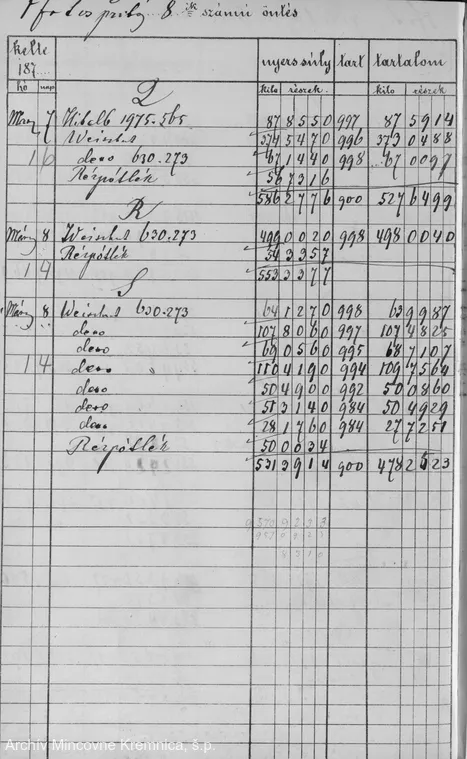 8 ik számú öntés
kelte nyers súly tart tartalom
187
hó nap kilo részek. kilo részek
Q
März 7 Vitalb 1975.565 87 8550 997 87 5914
Weishut 374 5470 996 373 0488
16 detto 630.273 67 1440 998 67 0097
Rézpótlék 56 7316
586 2776 900 527 6499
R
März 8 Weishut 630.273 499 0020 998 498 0040
Rézpótlék 54 3357
14 553 3377
S
März 8 Weishut 630.273 64 1270 998 63 9987
detto 107 8060 997 107 4825
detto 69 0560 995 68 7107
14 detto " 110 4190 994 109 7564
detto 50 4900 992 50 0860
detto 51 3140 984 50 4929
detto 28 1760 984 27 7251
Rézpótlék 50 0034
531 3914 900 478 2523
Archív Mincovne Kremnica, š.p.